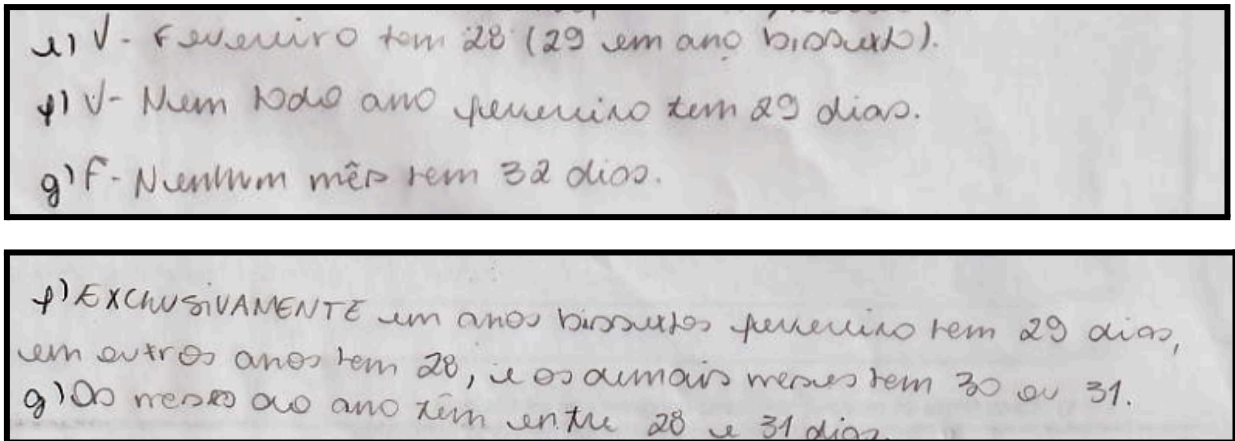 e) V - Fevereiro tem 28 (29 em ano bissexto).
f) V - Nem todo ano fevereiro tem 29 dias.
g) F - Nenhum mês tem 32 dias.
f) EXCLUSIVAMENTE em anos bissextos fevereiro tem 29 dias,
em outros anos tem 28, e os demais meses tem 30 ou 31.
g) Os meses do ano têm entre 28 e 31 dias.